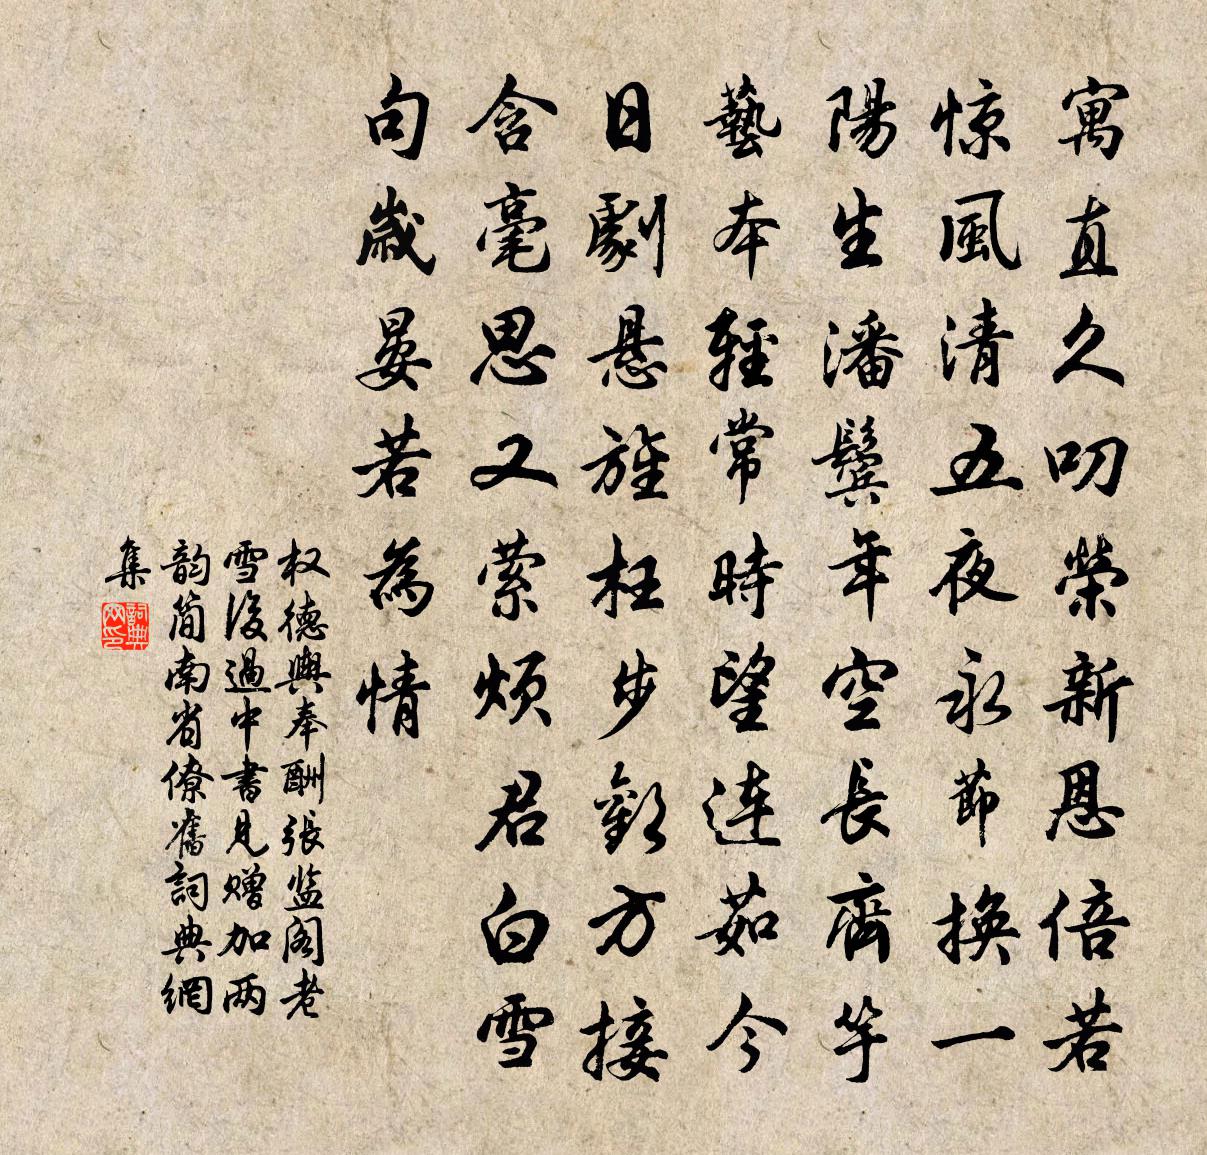 寓直久叨榮新恩倍若
惊風清五夜永節換一
陽生潘鬢年空長齊竽
藝本輕常時望連茹今
日劇悬旌枉步歡方接
含毫思又萦烦君白雪
句歲晏若為情
权德輿奉酬張监阁老
雪後過中書見赠加两
韵简南省僚舊詞典網
集
詞典网印